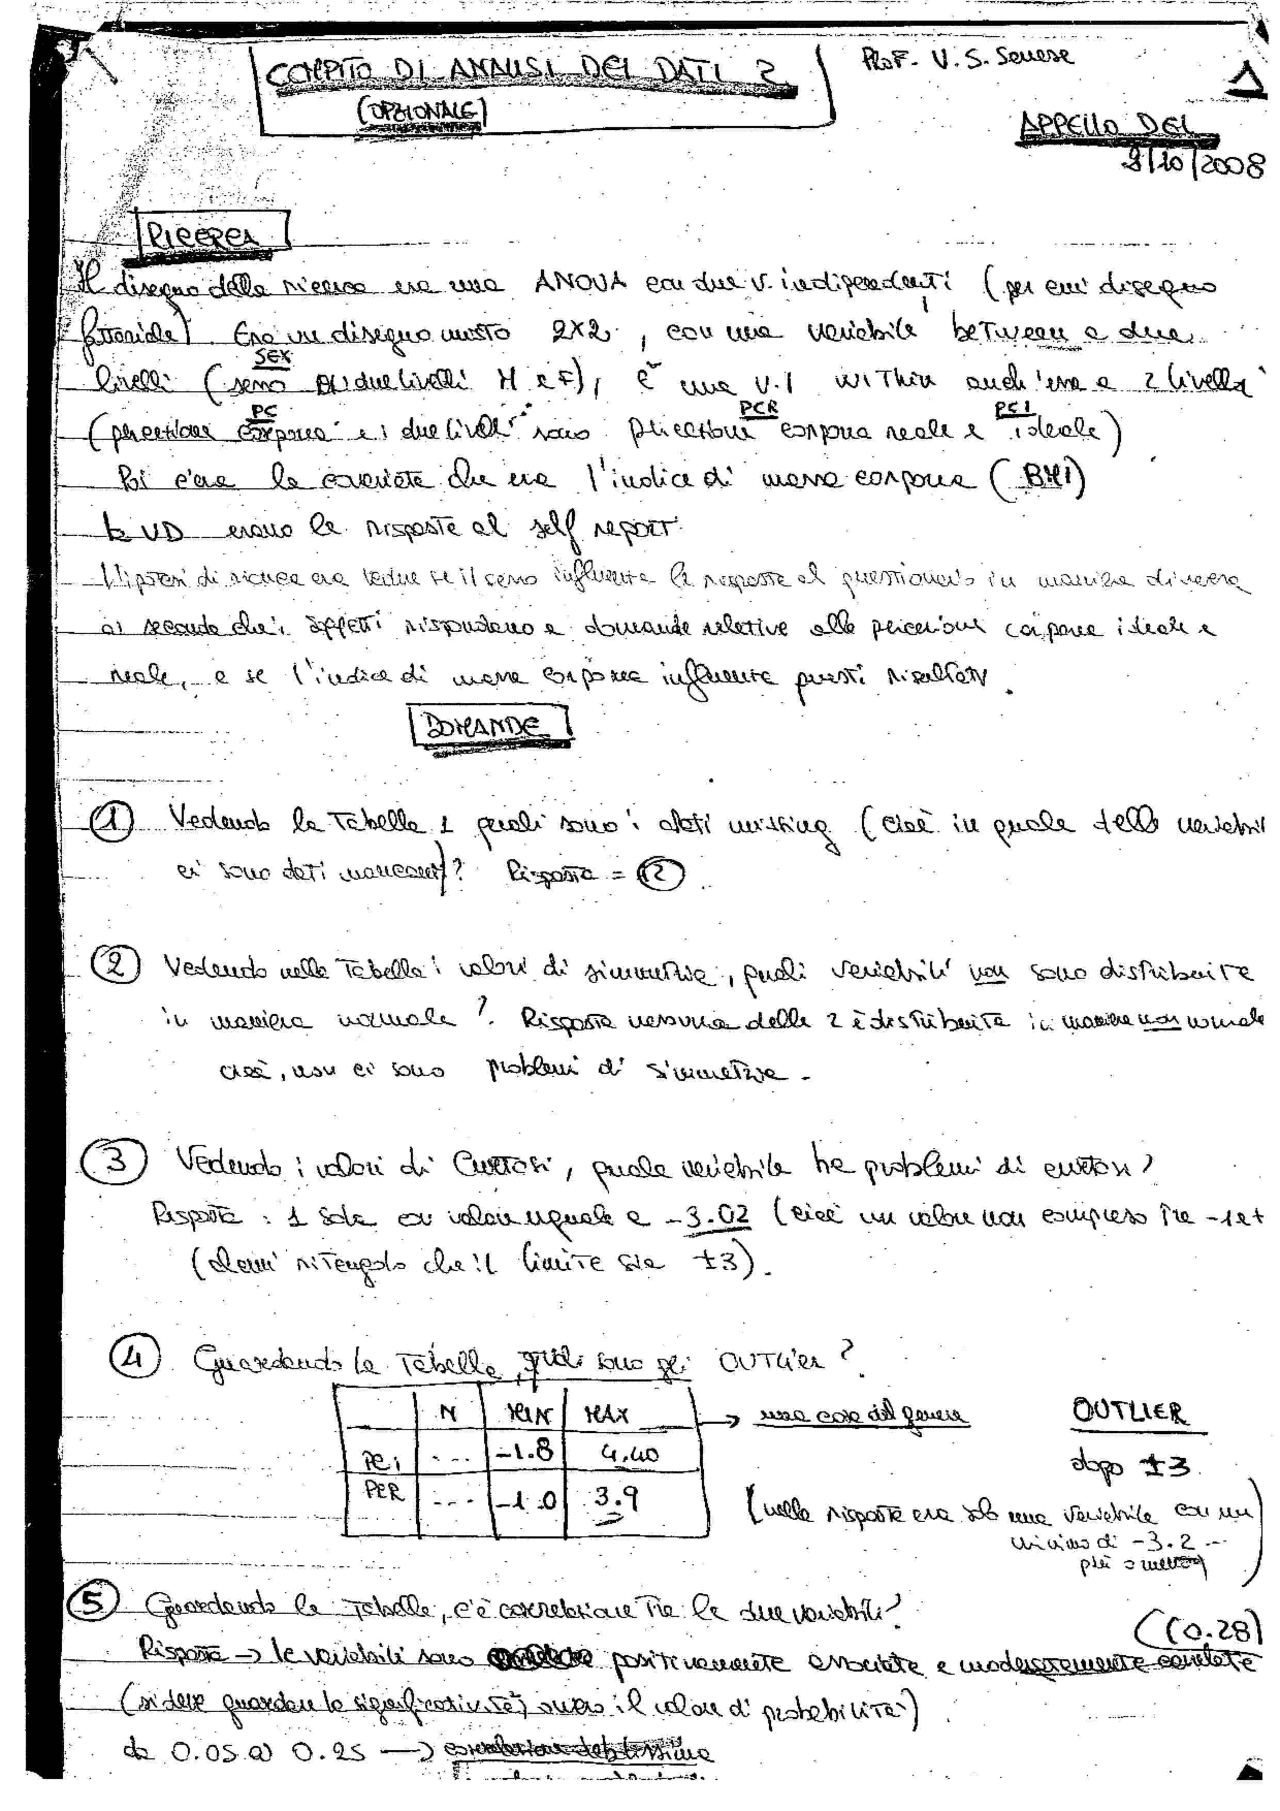 COMPITO DI ANALISI DEI DATI 2
(OPZIONALE)
Prof. V. S. Senese
1
APPELLO DEL
2/10/2008
RICERCA
Il disegno della ricerca era una ANOVA con due v. indipendenti (per cui disegno
fattoriale). Era un disegno misto 2x2, con una variabile between a due
SEX
livelli (sesso due livelli M e F), e una V.I within anch'essa a 2 livelli
PC PCR PCI
(percezione corporea e i due livelli sono percezione corporea reale e ideale)
Poi c'era la covariata che era l'indice di massa corporea (BMI)
La VD erano le risposte al self report.
L'ipotesi di ricerca era vedere se il sesso influenza le risposte al questionario in maniera diversa
a seconda che i soggetti rispondano a domande relative alla percezione corporea ideale e
reale, e se l'indice di massa corporea influenza questi risultati.
DOMANDE
1 Vedendo la Tabella 1 quali sono i dati missing (cioè in quale delle variabil
ci sono dati mancanti)? Risposta = 12
2 Vedendo nella Tabella i valori di simmetria, quali variabili non sono distribuite
in maniera normale? Risposta nessuna delle 2 è distribuita in maniera non normale
cioè, non ci sono problemi di simmetria.
3 Vedendo i valori di Curtosi, quale variabile ha problemi di curtosi?
Risposta: 1 sola con valore uguale a -3.02 (cioè un valore non compreso tra -1 e +
(alcuni ritengono che il limite sia ±3).
4 Guardando la Tabella, quali sono gli OUTLIER?
N MIN MAX → una cosa del genere OUTLIER
PCI ... -1.8 4.40 dopo ±3
PCR ... -1.0 3.9 (nella risposta era solo una variabile con un
minimo di -3.2 ...
più o meno)
5 Guardando la Tabella, c'è correlazione tra le due variabili?
(0.28)
Risposta → le variabili sono positivamente associate e moderatamente correlate
(si deve guardare la significatività, ovvero il valore di probabilità)
da 0.05 a 0.25 →